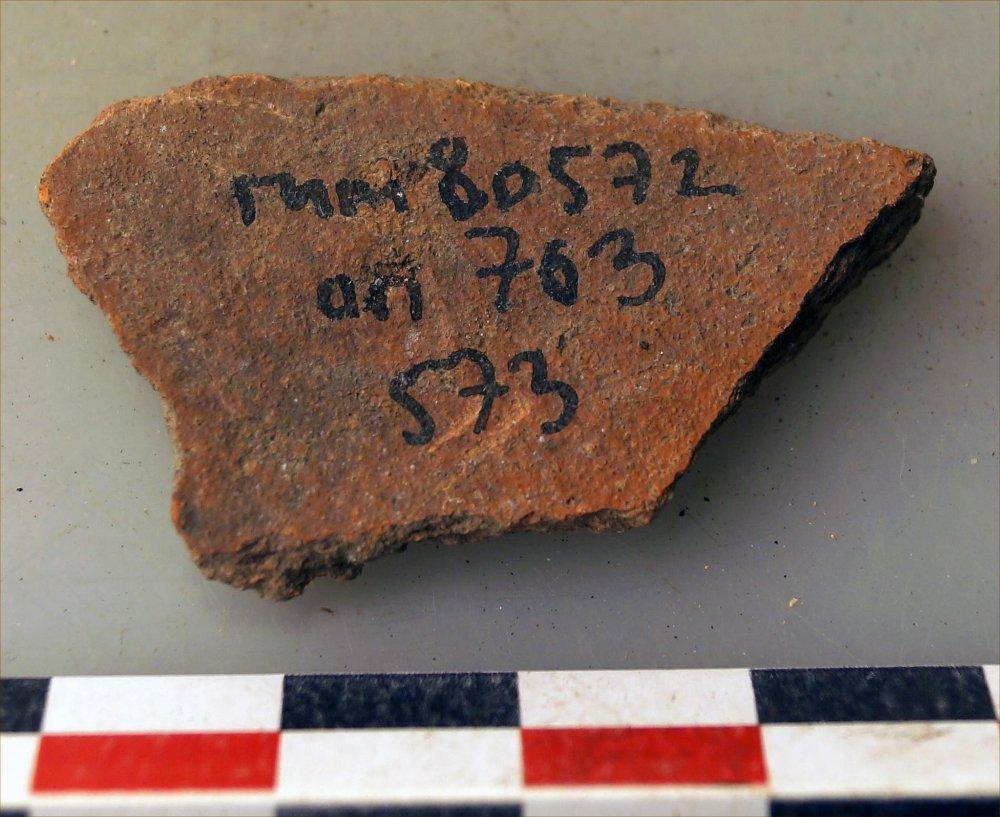 mm 80572
an 763
573